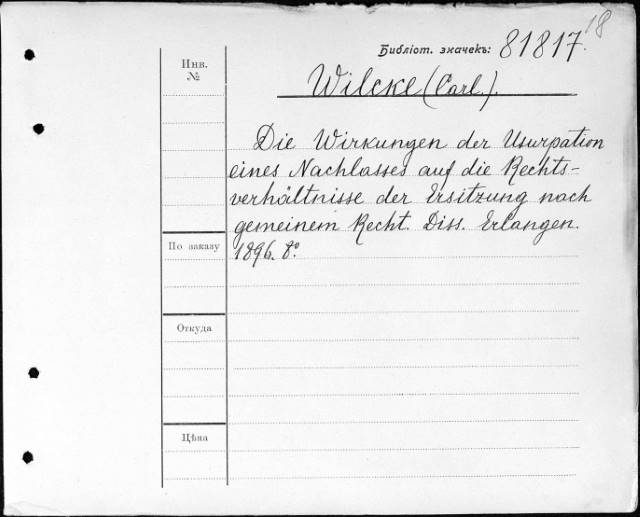 18
Библіот. значекъ: 81817.
Инв.
№
Wilcke (Carl.).
Die Wirkungen der Usurpation
eines Nachlasses auf die Rechts-
verhältnisse der Ersitzung nach
gemeinem Recht. Diss. Erlangen.
1896. 8°.
По заказу
Откуда
Цѣна